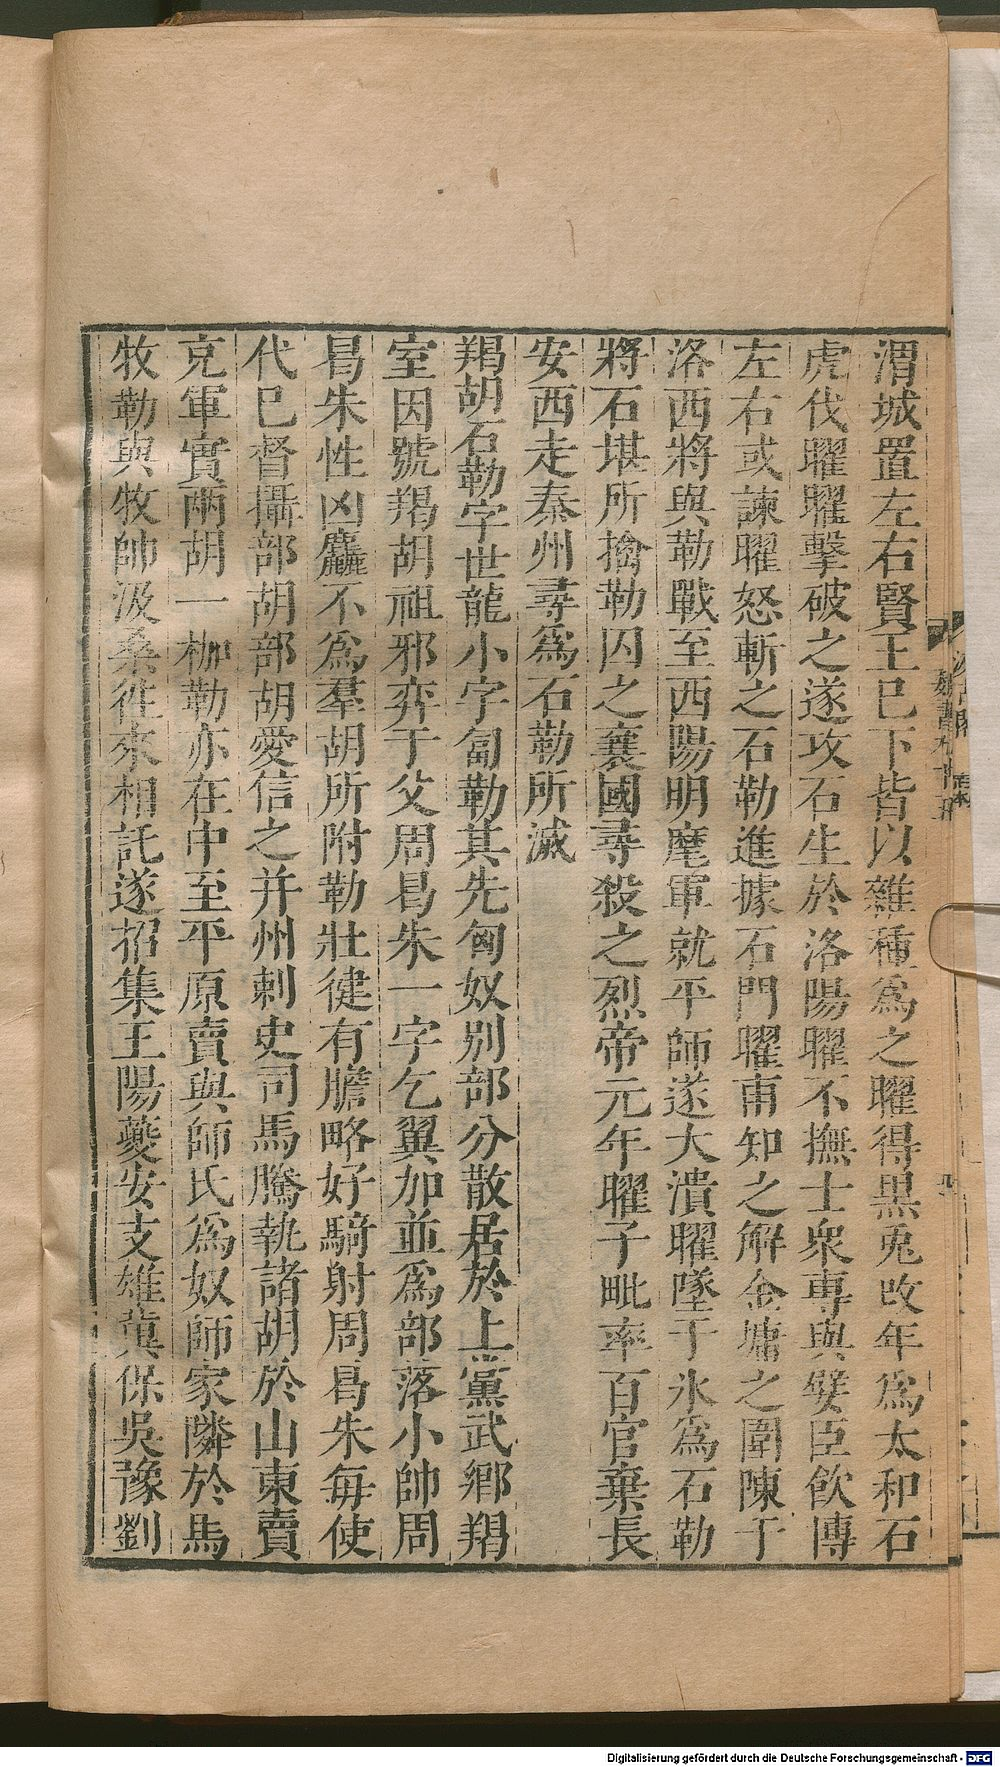 渭城置左右賢王巳下皆以雜種爲之曜得黒兎改年爲太和石
虎伐曜曜擊破之遂攻石生於洛陽曜不撫士衆專與嬖臣飲博
左右或諫曜怒斬之石勒進據石門曜甫知之解金墉之圍陳于
洛西將與勒戰至西陽明麾軍就平師遂大潰曜墜于氷爲石勒
將石堪所擒勒囚之襄國尋殺之烈帝元年曜子毗率百官棄長
安西走秦州尋爲石勒所滅
羯胡石勒字世龍小字匐勒其先匈奴别部分散居於上黨武鄉羯
室因號羯胡祖邪弈于父周曷朱一字乞翼加並爲部落小帥周
曷朱性凶麤不爲羣胡所附勒壯健有膽略好騎射周曷朱每使
代巳督攝部胡部胡愛信之并州刺史司馬騰執諸胡於山東賣
充軍實兩胡一枷勒亦在中至平原賣與師氏爲奴師家隣於馬
牧勒與牧帥汲桑往來相託遂招集王陽夔安支雄冀保吳豫劉
魏書九十五
Digitalisierung gefördert durch die Deutsche Forschungsgemeinschaft - DFG